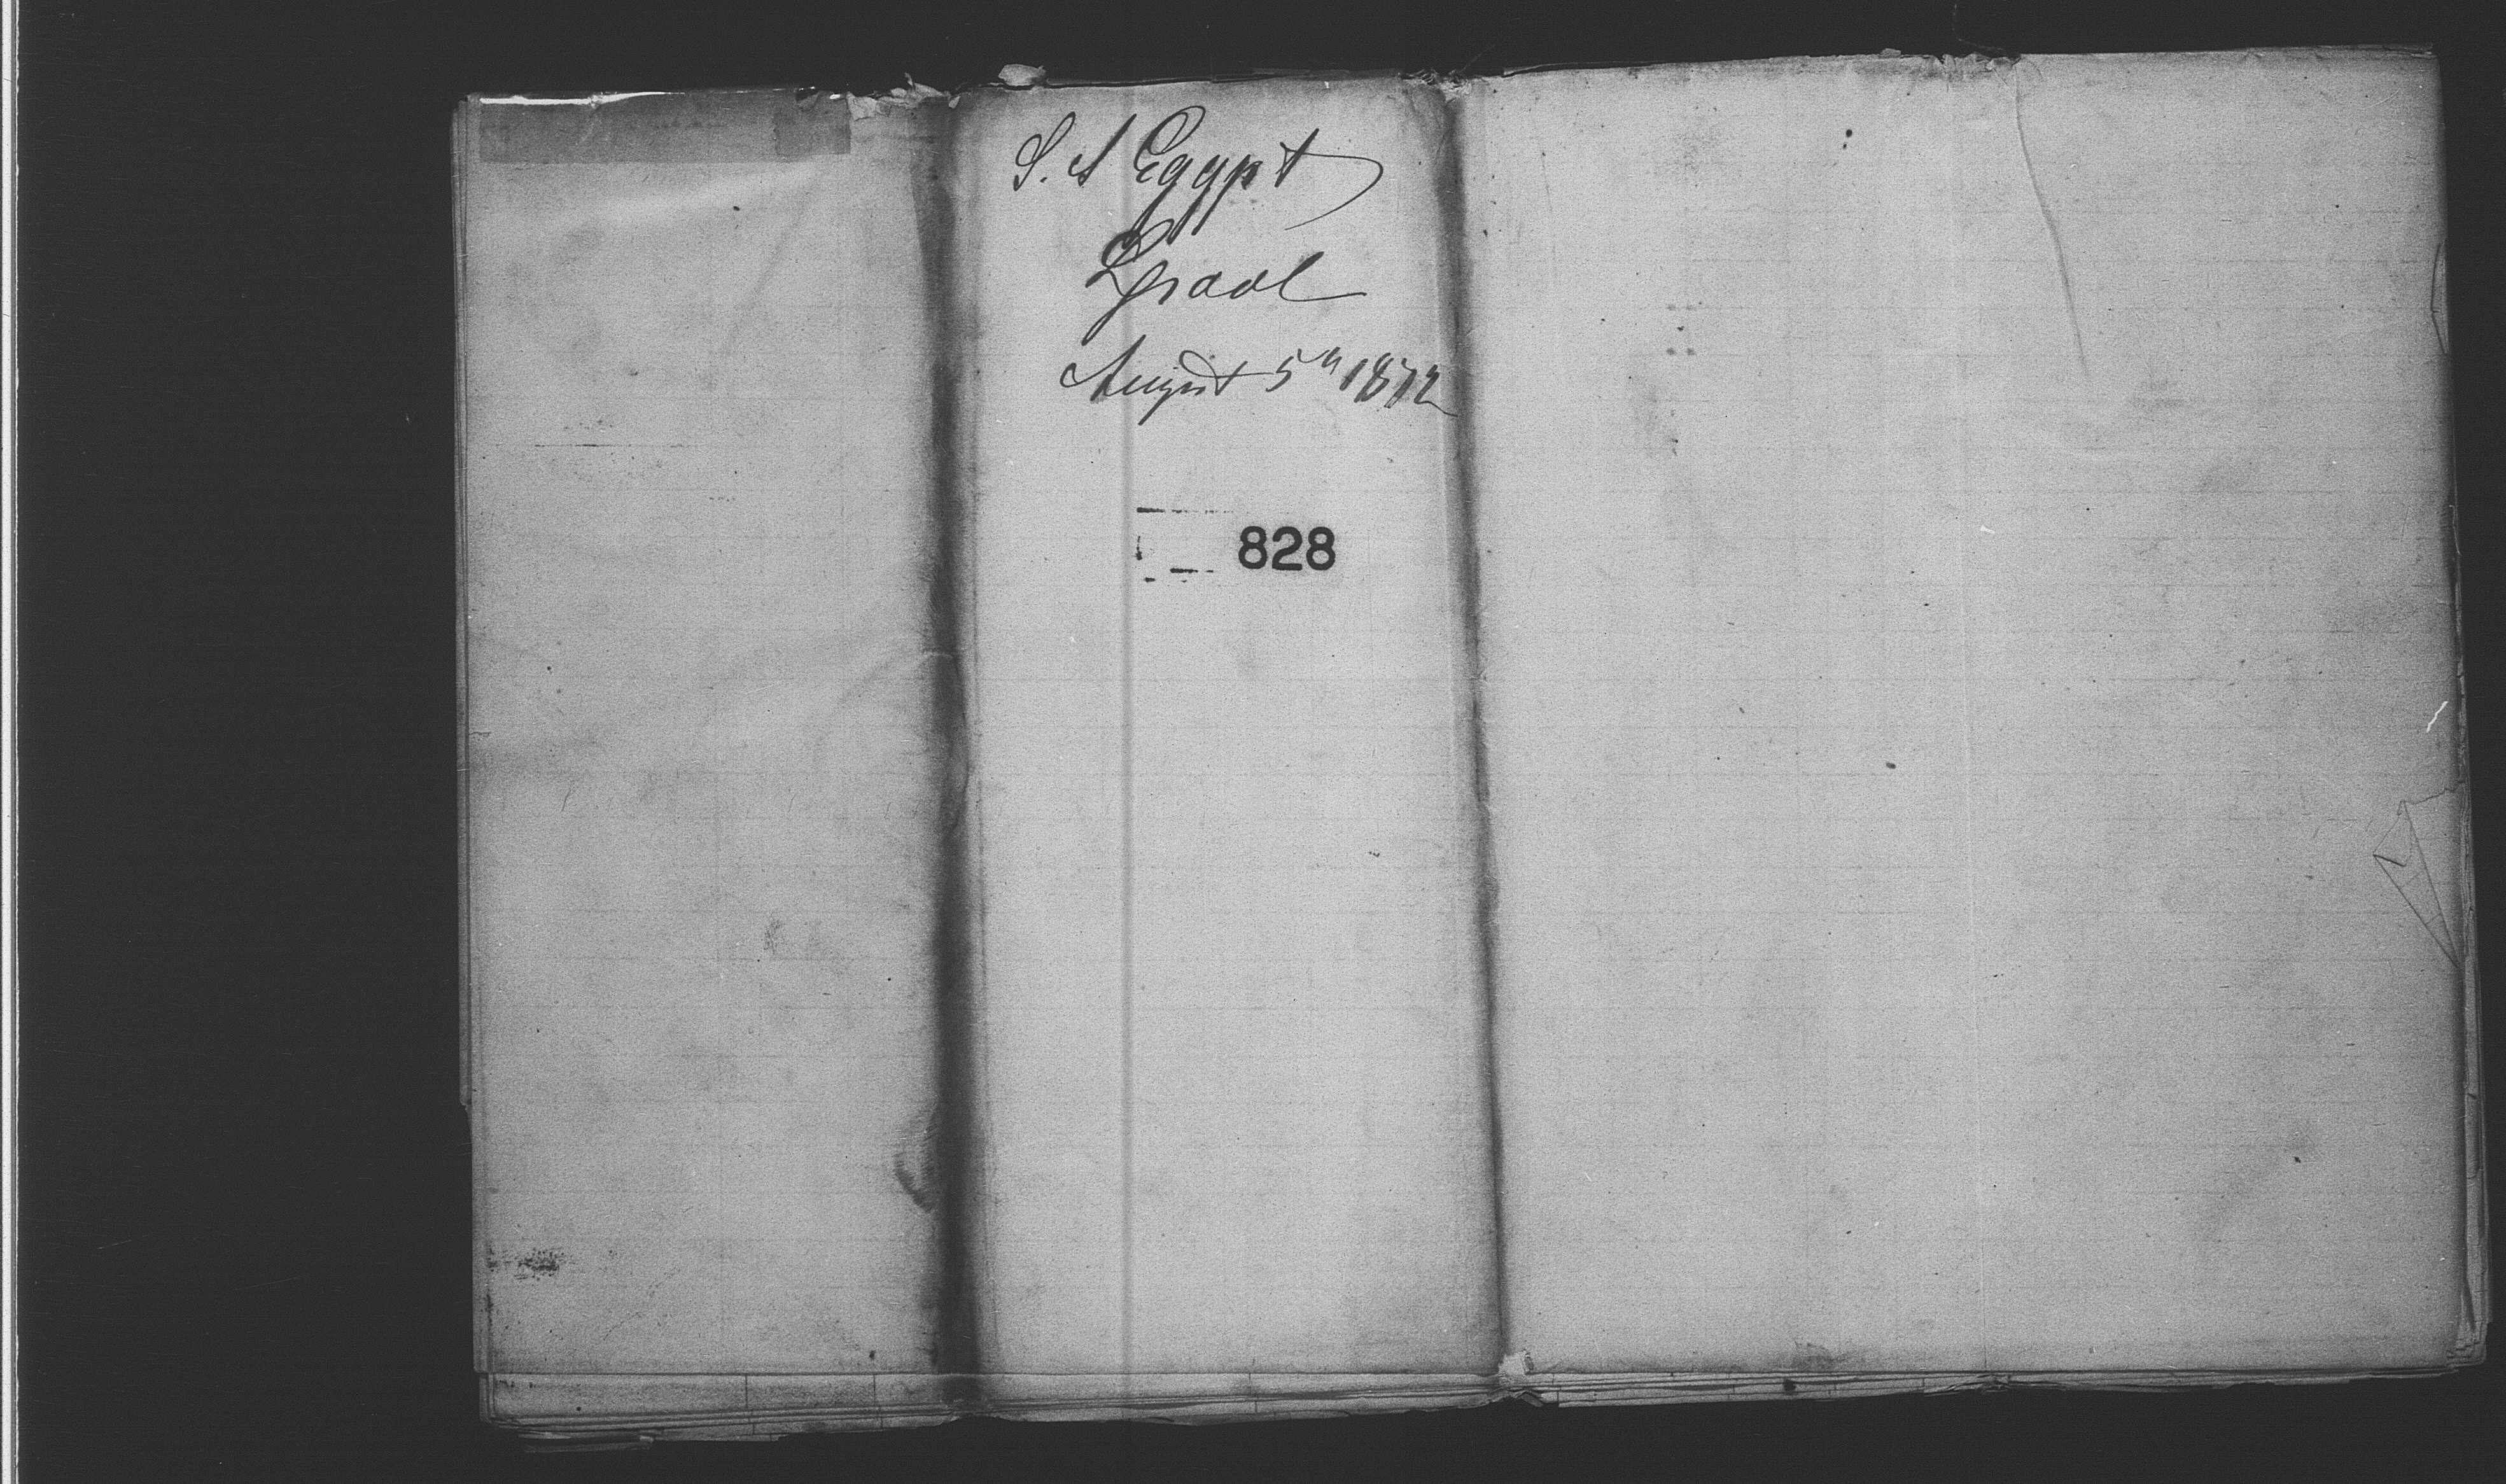 S. S Egypt
L'pool
August 5th 1872
828